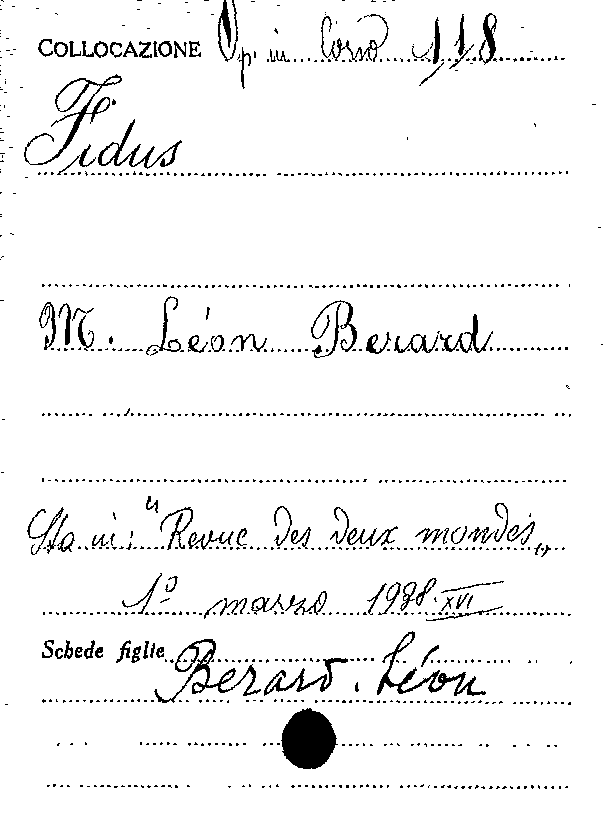 COLLOCAZIONE Op. in Corso 118
Fidus
M. Léon Berard
Sta in: "Revue des deux mondes„
1º marzo 1938 XVI
Schede figlie Berard. Léon